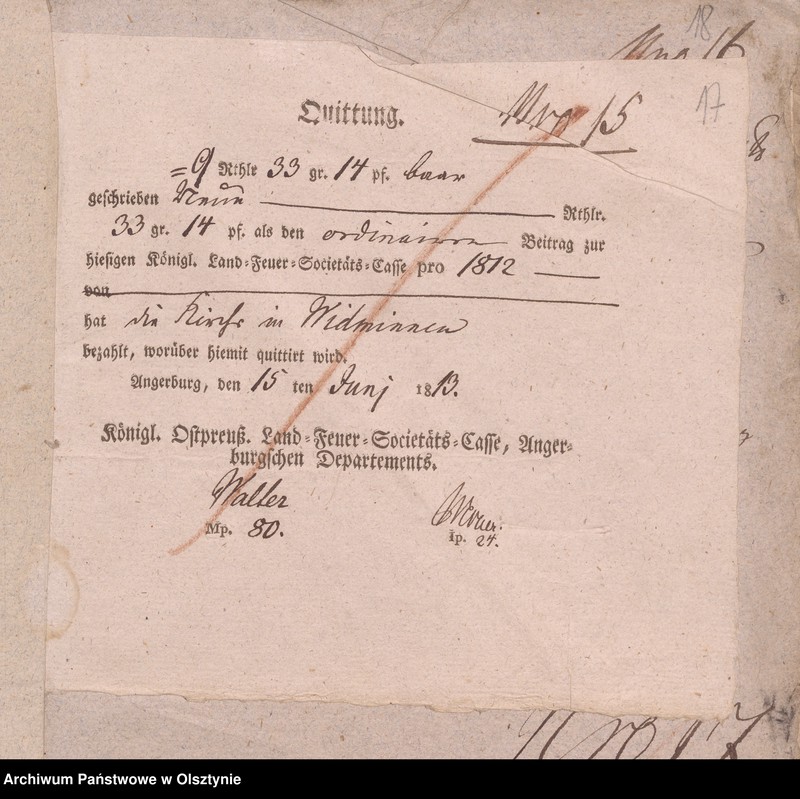 18
Nro 16
17
Quittung.
Nro 15
=9 Rthlr 33 gr. 14 pf. baar
geschrieben Neun Rthlr.
33 gr. 14 pf. als den ordinairen Beitrag zur
hiesigen Königl. Land-Feuer-Societäts-Casse pro 1812
von
hat die Kirche in Widminnen
bezahlt, worüber hiemit quittirt wird.
Angerburg, den 15 ten Junj 1813.
Königl. Ostpreuß. Land-Feuer-Societäts-Casse, Anger-
burgschen Departements.
Walter
Mp. 80. Ip. 24.
Nro 17
Archiwum Państwowe w Olsztynie